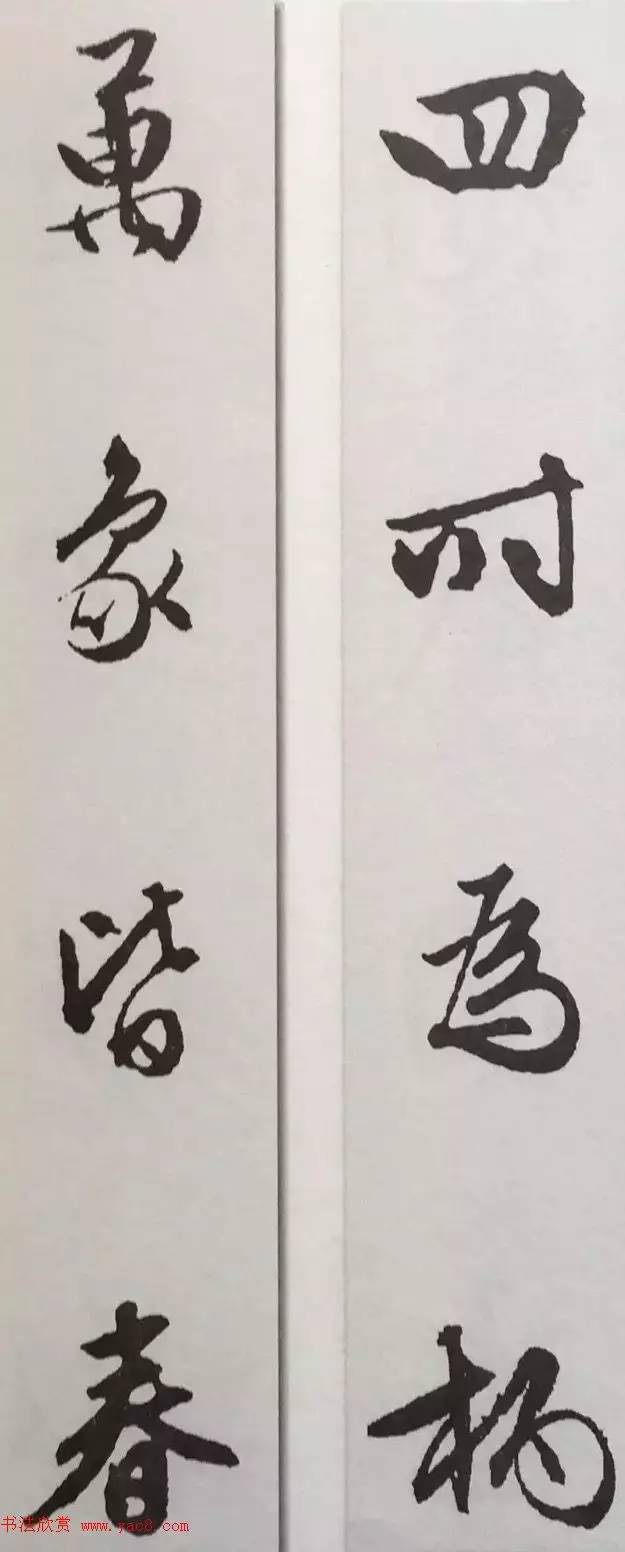 四时為柄
萬象皆春
书法欣赏 www.yac8.com